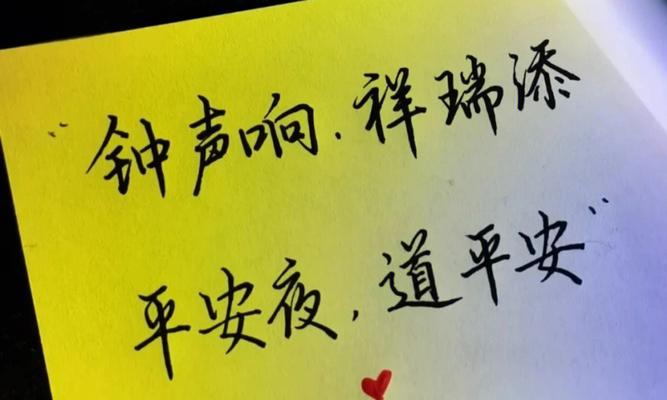 “钟声响，祥瑞添
平安夜，道平安”